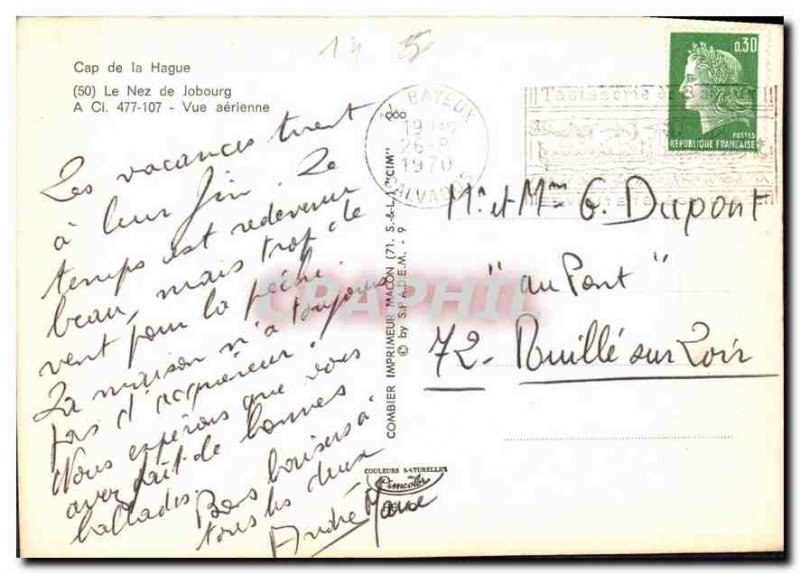 14 5
Cap de la Hague
(50) Le Nez de Jobourg
A Ci. 477-107 - Vue aérienne
Les vacances tirent
à leur fin. Le
temps est redevenu
beau, mais trop de
vent pour la pêche.
La maison n'a toujours
pas d'acquéreur.
Nous espérons que vous
avez fait de bonnes
ballades.
Bons baisers à
tous les deux
André
COMBIER IMPRIMEUR MACON (71. S.-&-L.) "CIM"
© by S.P.A.D.E.M. - 9
COULEURS NATURELLES
Cimcolor
14 BAYEUX
26-8
1970
CALVADOS
Tapisserie de
0,30
POSTES
REPUBLIQUE FRANÇAISE
Mr. et Mme. G. Dupont
"au Pont"
72- Ruillé sur Loir
CPAPHIL